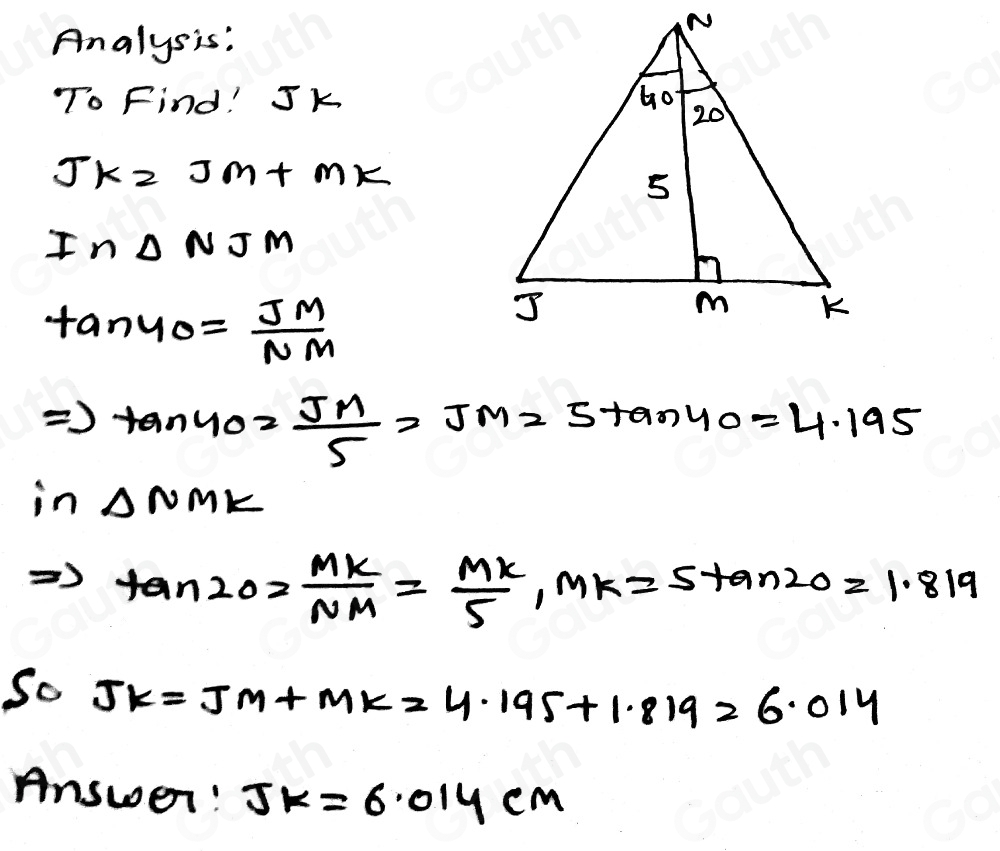 Analysis:
To Find! JK
JK = JM + MK
In Δ NJM
tan40 = JM/NM
=) tan40 = JM/5 = JM = 5tan40 = 4.195
in Δ NMK
=) tan20 = MK/NM = MK/5, MK = 5tan20 = 1.819
So JK = JM + MK = 4.195 + 1.819 = 6.014
Answer: JK = 6.014 cm
N
40
20
5
J
M
K
Gauth